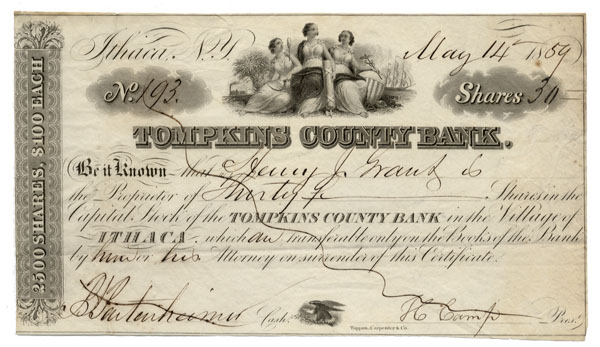 Ithaca, N.Y. May 14 1859
2500 SHARES, $100 EACH
No. 193. Shares 30
TOMPKINS COUNTY BANK.
Be it Known that Henry J. Grant is
the Proprietor of Thirty Shares in the
Capital Stock of the TOMPKINS COUNTY BANK in the Village of
ITHACA, which are transferable only on the Books of the Bank
by him or his Attorney on surrender of this Certificate.
Cash. H Camp Pres.
Toppan, Carpenter & Co.